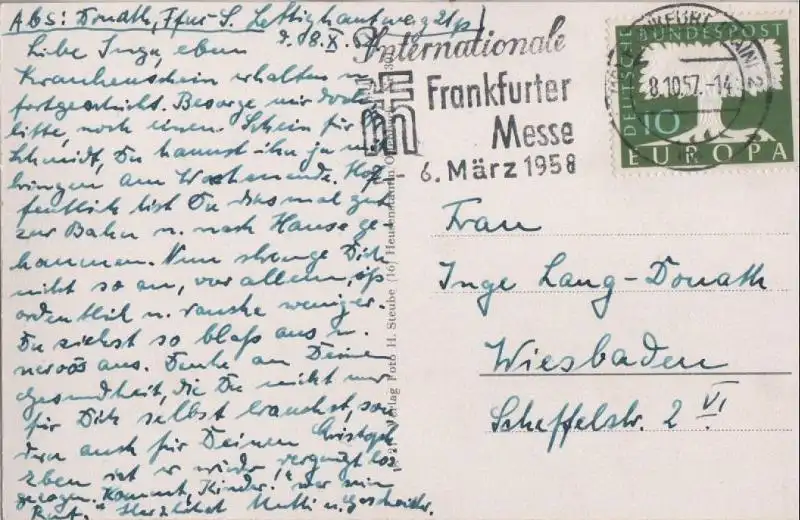 Abs: Donath, Ffm-S.
Liebe Inge, eben 8.X.
Krankenschein erhalten u.
fortgeschickt. Besorge mir doch
bitte, noch einen Schein für
Schmidt, Du kannst ihn ja mit
bringen am Wochenende. Hof
fentlich bist Du diesmal gut
zur Bahn u. nach Hause ge
kommen. Nun strenge Dich
nicht so an, vor allem, iß
ordentlich u. rauche weniger.
Du siehst so blaß aus u.
nervös aus. Denke an Deine
Gesundheit, die Du nicht nur
für Dich selbst brauchst, son
dern auch für Deinen Christoph
Eben ist er wieder vergnügt los
gezogen. "Kommt, Kinder!" war sein
Ruf. Herzlichst Mutti u.
Verlag Foto H. Steube (16) Heusenstamm
Internationale
Frankfurter
Messe
- 6. März 1958
8.10.57.-14
DEUTSCHE BUNDESPOST
10
EUROPA
Frau
Inge Lang-Donath
Wiesbaden
Scheffelstr. 2 VI